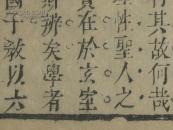 有其故何哉
性聖人之
實在於玄室
辨矣學者
國子教以六